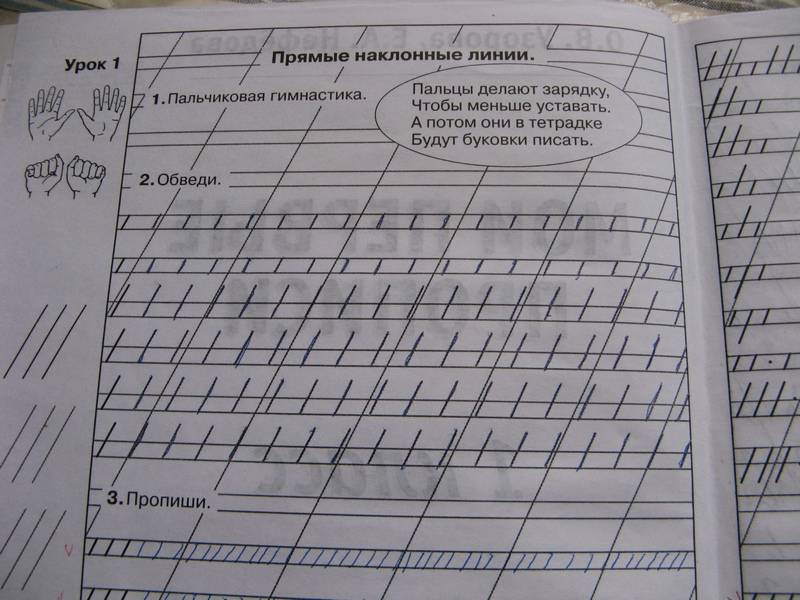 О.В. Узорова, Е.А. Нефёдова
Урок 1
Прямые наклонные линии.
1. Пальчиковая гимнастика.
Пальцы делают зарядку,
Чтобы меньше уставать.
А потом они в тетрадке
Будут буковки писать.
2. Обведи.
МОИ ПЕРВЫЕ
ПРОПИСИ
1 класс
3. Пропиши.